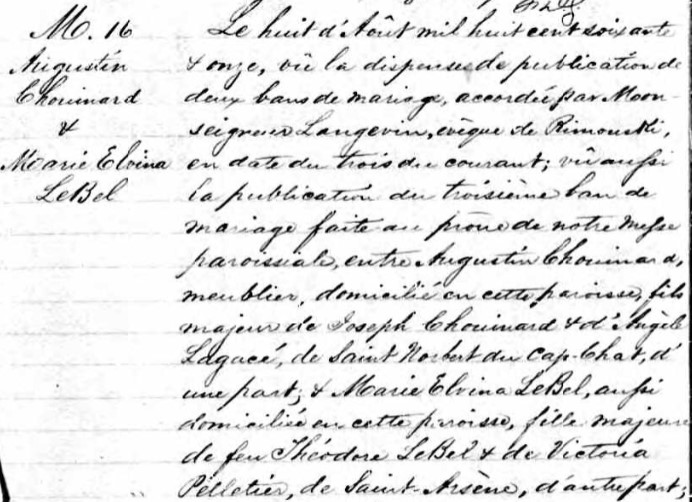 M. 16
Augustin
Chouinard
&
Marie Elvina
LeBel
Le huit d'Août mil huit cent soixante
& onze, vû la dispense de publication de
deux bans de mariage, accordée par Mon-
seigneur Langevin, évêque de Rimouski,
en date du trois du courant; vû aussi
la publication du troisième ban de
mariage faite au prône de notre Messe
paroissiale, entre Augustin Chouinard,
meublier, domicilié en cette paroisse, fils
majeur de Joseph Chouinard & d'Angèle
Lagacé, de Saint Norbert du Cap-Chat, d'
une part; & Marie Elvina LeBel, aussi
domiciliée en cette paroisse, fille majeure
de feu Théodore LeBel & de Victoria
Pelletier, de Saint-Arsène, d'autre part;